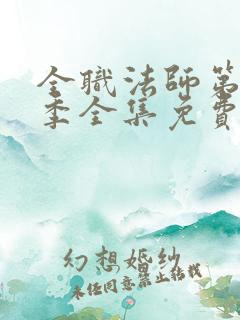 全職法師第
季全集免費
幻想婚紗
未经同意禁止转载